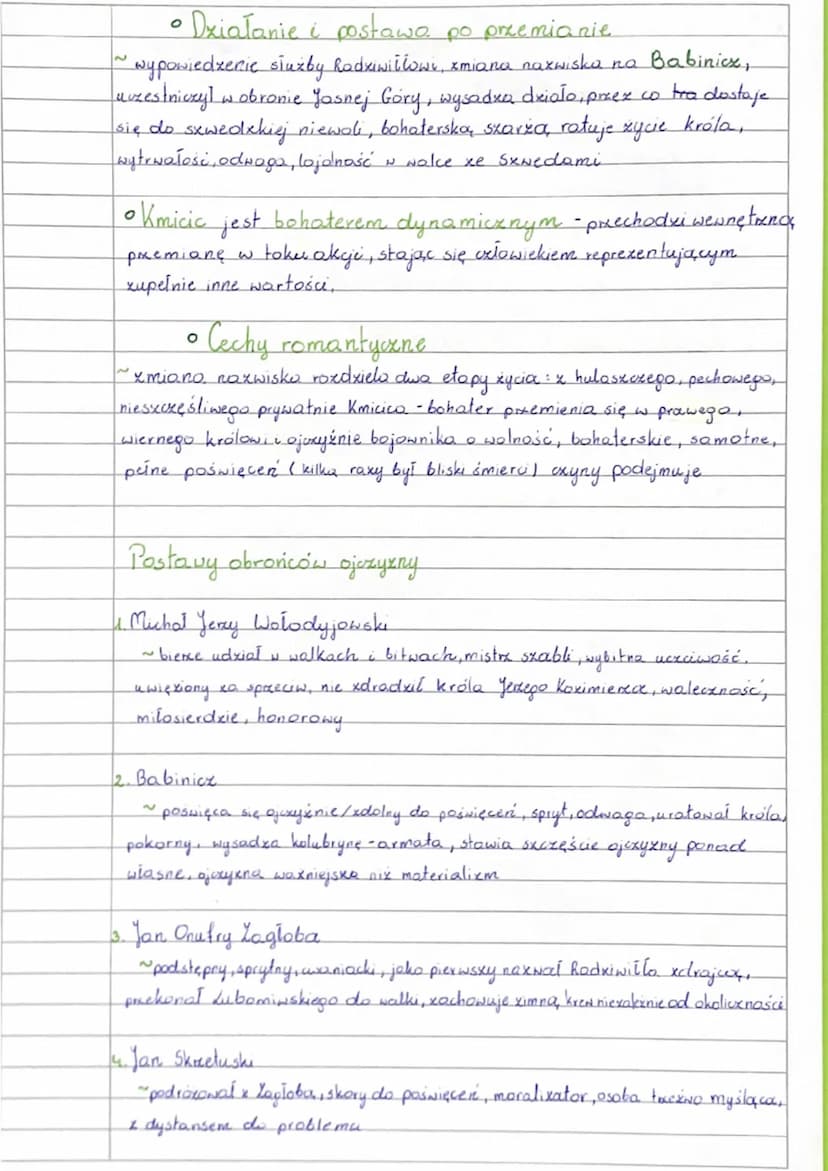 ° Działanie i postawa po przemianie
~ wypowiedzenie służby Radziwiłłowi, zmiana nazwiska na Babinicz,
uczestniczył w obronie Jasnej Góry, wysadza działo, przez co tra dostaje
się do szwedzkiej niewoli, bohaterską szarżą ratuje życie króla,
wytrwałość, odwaga, lojalność w walce ze Szwedami
° Kmicic jest bohaterem dynamicznym - przechodzi wewnętrzną
przemianę w toku akcji, stając się człowiekiem reprezentującym
zupełnie inne wartości.
° Cechy romantyczne
~ zmiana nazwiska rozdziela dwa etapy życia : z hulaszczego, pechowego,
nieszczęśliwego prywatnie Kmicica - bohater przemienia się w prawego,
wiernego królowi i ojczyźnie bojownika o wolność, bohaterskie, samotne,
pełne poświęceń (kilka razy był bliski śmierci) czyny podejmuje
Postawy obrońców ojczyzny
1. Michał Jerzy Wołodyjowski
~ bierze udział w walkach i bitwach, mistrz szabli, wybitna uczciwość.
uwięziony za sprzeciw, nie zdradził króla Jerzego Kazimierza, waleczność,
miłosierdzie, honorowy
2. Babinicz
~ poswięca się ojczyźnie/zdolny do poświęceń, spryt, odwaga, uratował króla,
pokorny, wysadza kolubrynę - armata, stawia szczęście ojczyzny ponad
własne, ojczyzna ważniejsza niż materializm
3. Jan Onufry Zagłoba
~ podstępny, sprytny, zawadiacki, jako pierwszy nazwał Radziwiłła zdrajcą,
przekonał Lubomirskiego do walki, zachowuje zimną krew niezależnie od okoliczności
4. Jan Skrzetuski
~ podróżował z Zagłobą, skory do poświęceń, moralizator, osoba trzeźwo myśląca,
z dystansem do problemu